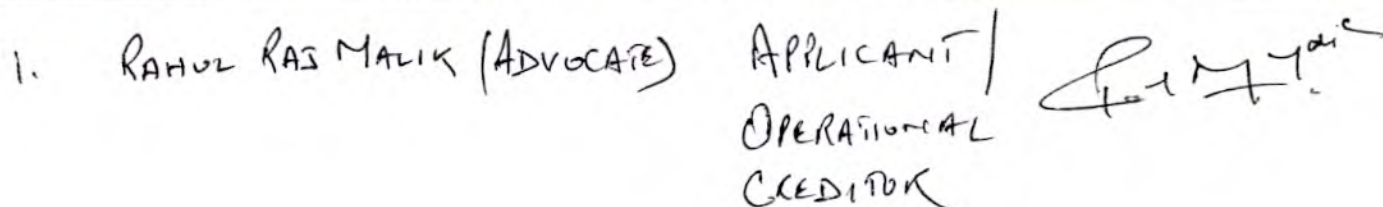 1. RAHUL RAJ MALIK (ADVOCATE) APPLICANT /
OPERATIONAL
CREDITOR